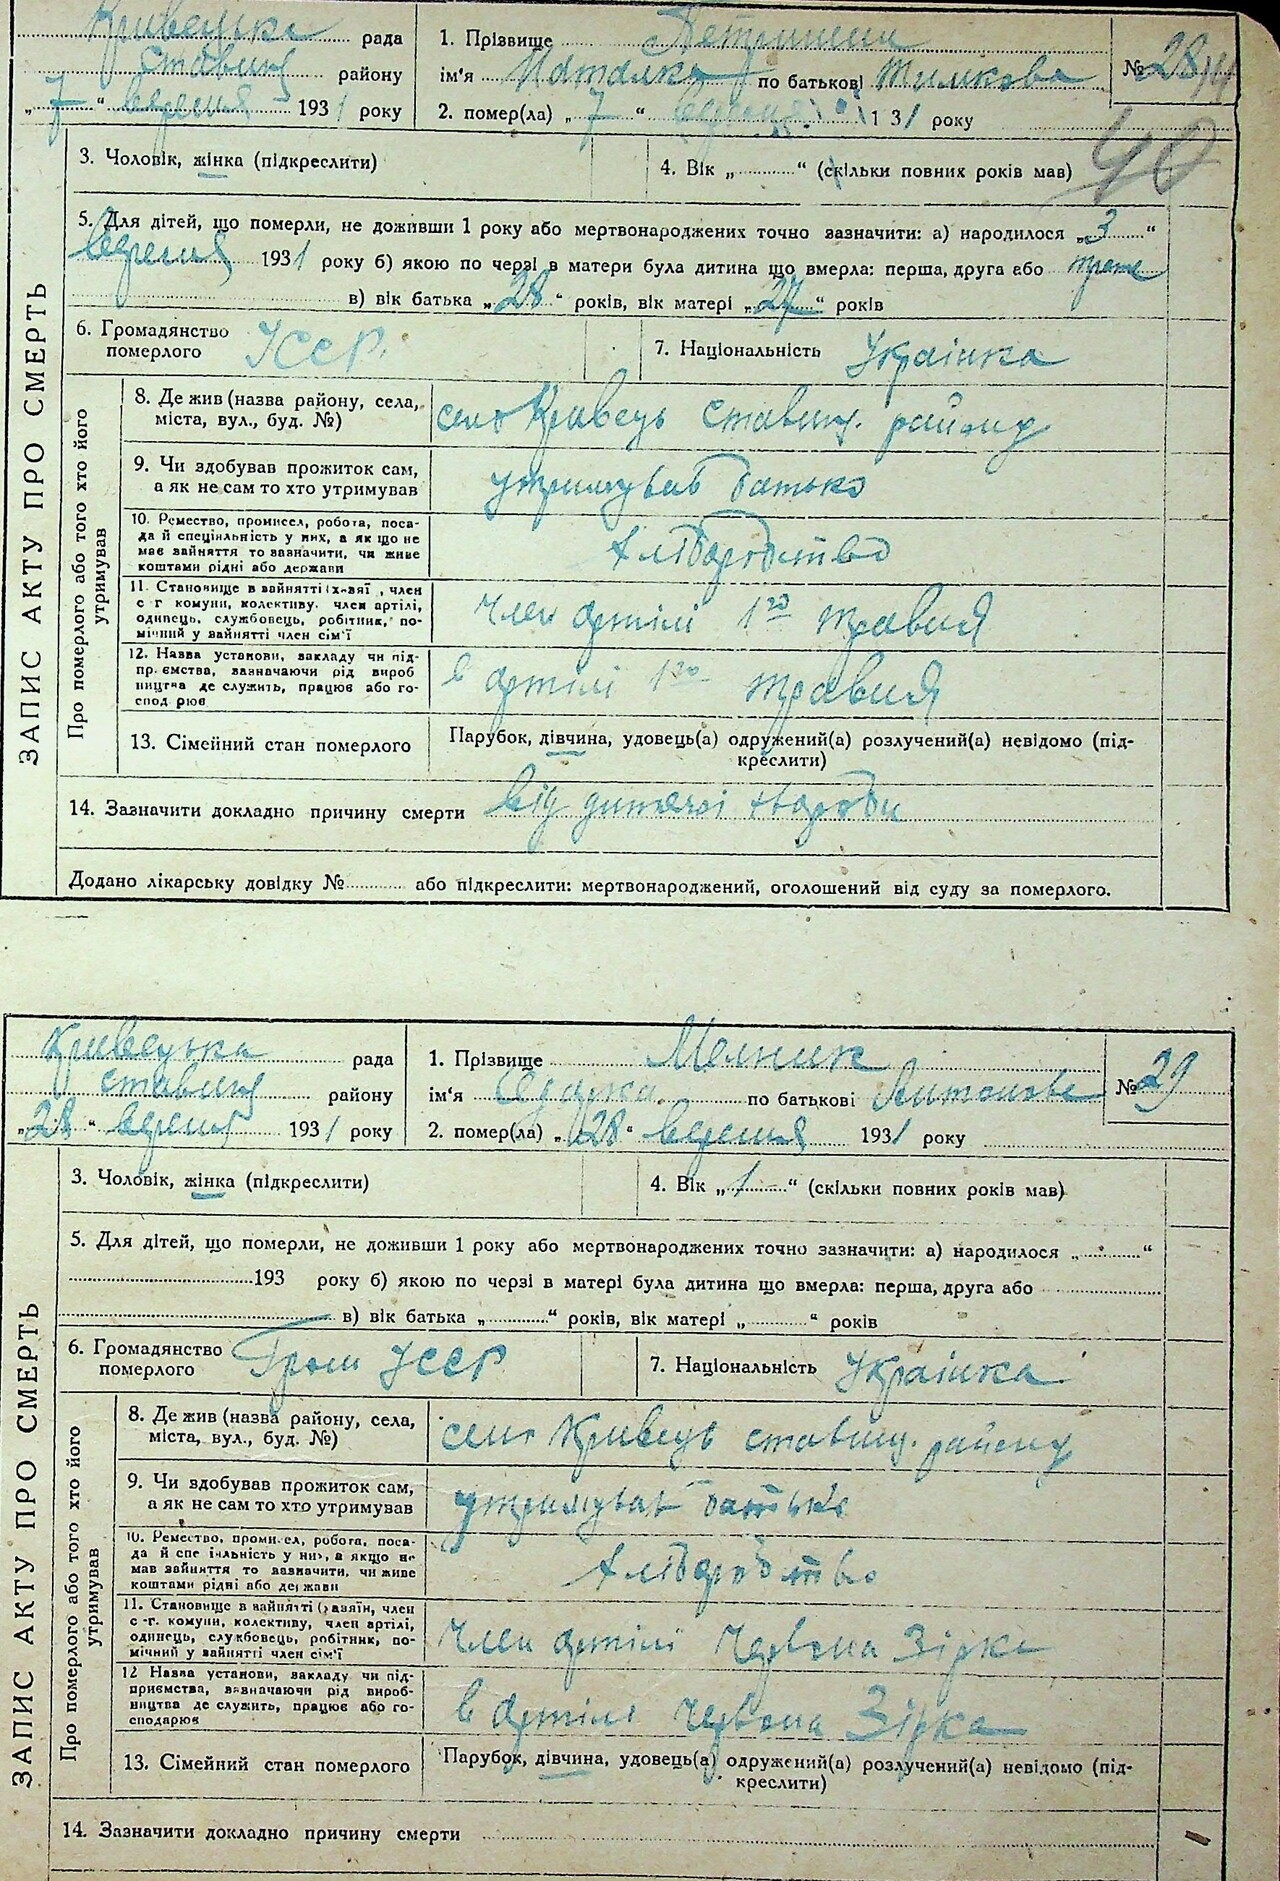 Кривецька рада
Ставищ району
„7“ вересня 1931 року
1. Прізвище
ім'я Наталка по батькові Тимкова
2. помер(ла) „7“ вересня 131 року
№ 28
40
ЗАПИС АКТУ ПРО СМЕРТЬ
3. Чоловік, жінка (підкреслити)
4. Вік „ “ (скільки повних років мав)
5. Для дітей, що померли, не доживши 1 року або мертвонароджених точно зазначити: а) народилося „3“
вересня 1931 року б) якою по черзі в матери була дитина що вмерла: перша, друга або трете
в) вік батька „28“ років, вік матері „27“ років
6. Громадянство
померлого УССР.
7. Національність Українка
Про померлого або того хто його
утримував
8. Де жив (назва району, села,
міста, вул., буд. №)
село Кривець ставищ. району
9. Чи здобував прожиток сам,
а як не сам то хто утримував
утримував батько
10. Ремество, промисел, робота, поса-
да й спеціяльність у них, а як що не
має вайняття то вазначити, чи живе
коштами рідні або держави
хліборобство
11. Становище в вайнятті член
с г комуни, колективу, член артілі,
одинець, службовець, робітник, по-
мічний у вайнятті член сім'ї
член артілі 1го травня
12. Назва установи, закладу чи під-
пр. ємства, вазначаючи рід вироб
ництва де служить, працює або го-
спод рює
в артілі 1го травня
13. Сімейний стан померлого
Парубок, дівчина, удовець(а) одружений(а) розлучений(а) невідомо (під-
креслити)
14. Зазначити докладно причину смерти від дитячої хвороби
Додано лікарську довідку № або підкреслити: мертвонароджений, оголошений від суду за померлого.
Кривецька рада
ставищ району
„28“ вересня 1931 року
1. Прізвище Мельник
ім'я Одарка по батькові Антонова
2. помер(ла) „28“ вересня 1931 року
№ 29
ЗАПИС АКТУ ПРО СМЕРТЬ
3. Чоловік, жінка (підкреслити)
4. Вік „1“ (скільки повних років мав)
5. Для дітей, що померли, не доживши 1 року або мертвонароджених точно зазначити: а) народилося „ “
193 року б) якою по черзі в матері була дитина що вмерла: перша, друга або
в) вік батька „ “ років, вік матері „ “ років
6. Громадянство
померлого Гром УССР
7. Національність Українка
Про померлого або того хто його
утримував
8. Де жив (назва району, села,
міста, вул., буд. №)
село Кривець ставищ. району
9. Чи здобував прожиток сам,
а як не сам то хто утримував
утримував батько
10. Ремество, промисел, робота, поса-
да й спе іяльність у них, а якщо не
мав вайняття то вазначити, чи живе
коштами рідні або держави
хліборобство
11. Становище в вайнятті член
с -г. комуни, колективу, член артілі,
одинець, службовець, робітник, по-
мічний у вайнятті член сім'ї
член артілі Червона Зірка
12 Назва установи, закладу чи під-
приємства, вазначаючи рід вироб-
ництва де служить, працює або го-
сподарює
в артілі Червона Зірка
13. Сімейний стан померлого
Парубок, дівчина, удовець(а) одружений(а) розлучений(а) невідомо (під-
креслити)
14. Зазначити докладно причину смерти